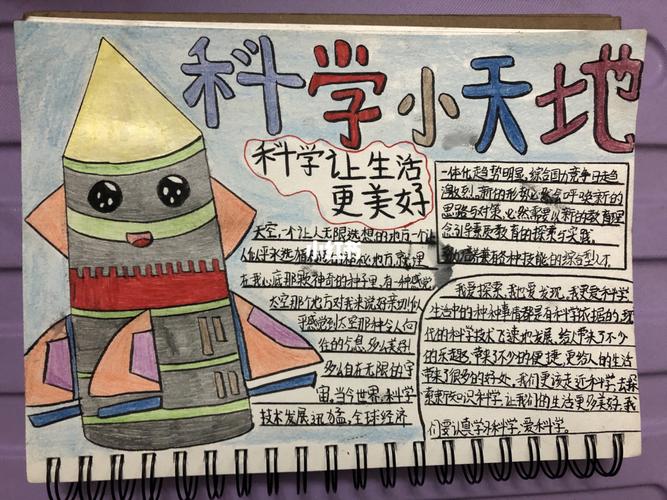 科学小天地
科学让生活
更美好
天空,一个让人无限遐想的地方一个让
在我心底那段神奇的种子里,有一种感觉
天空那个地方对我来说好亲切似
乎感觉到太空那种令人向
生的气息多么美好
多么自在无限的宇
宙,当今世界,科学
技术发展迅猛,全球经济
一体化趋势明显,综合国力竞争日趋
激烈,新的形势
呼唤新的
思路与对策,必然需要以新的教育理
念引导素质教育的探索与实践,
种技能的综合型人才
我爱探索,我也爱发现,我更爱科学
生活中的种种事情都是有科学依据的,现
代的科学技术飞速地发展,给人带来了不少
的乐趣,带来了不少的便捷,更给人的生活
带来了很多的好处,我们更该走近科学,去探
索更
知识科学,让我们的生活更多美好,我
们要认真学习科学,爱科学。
小红书